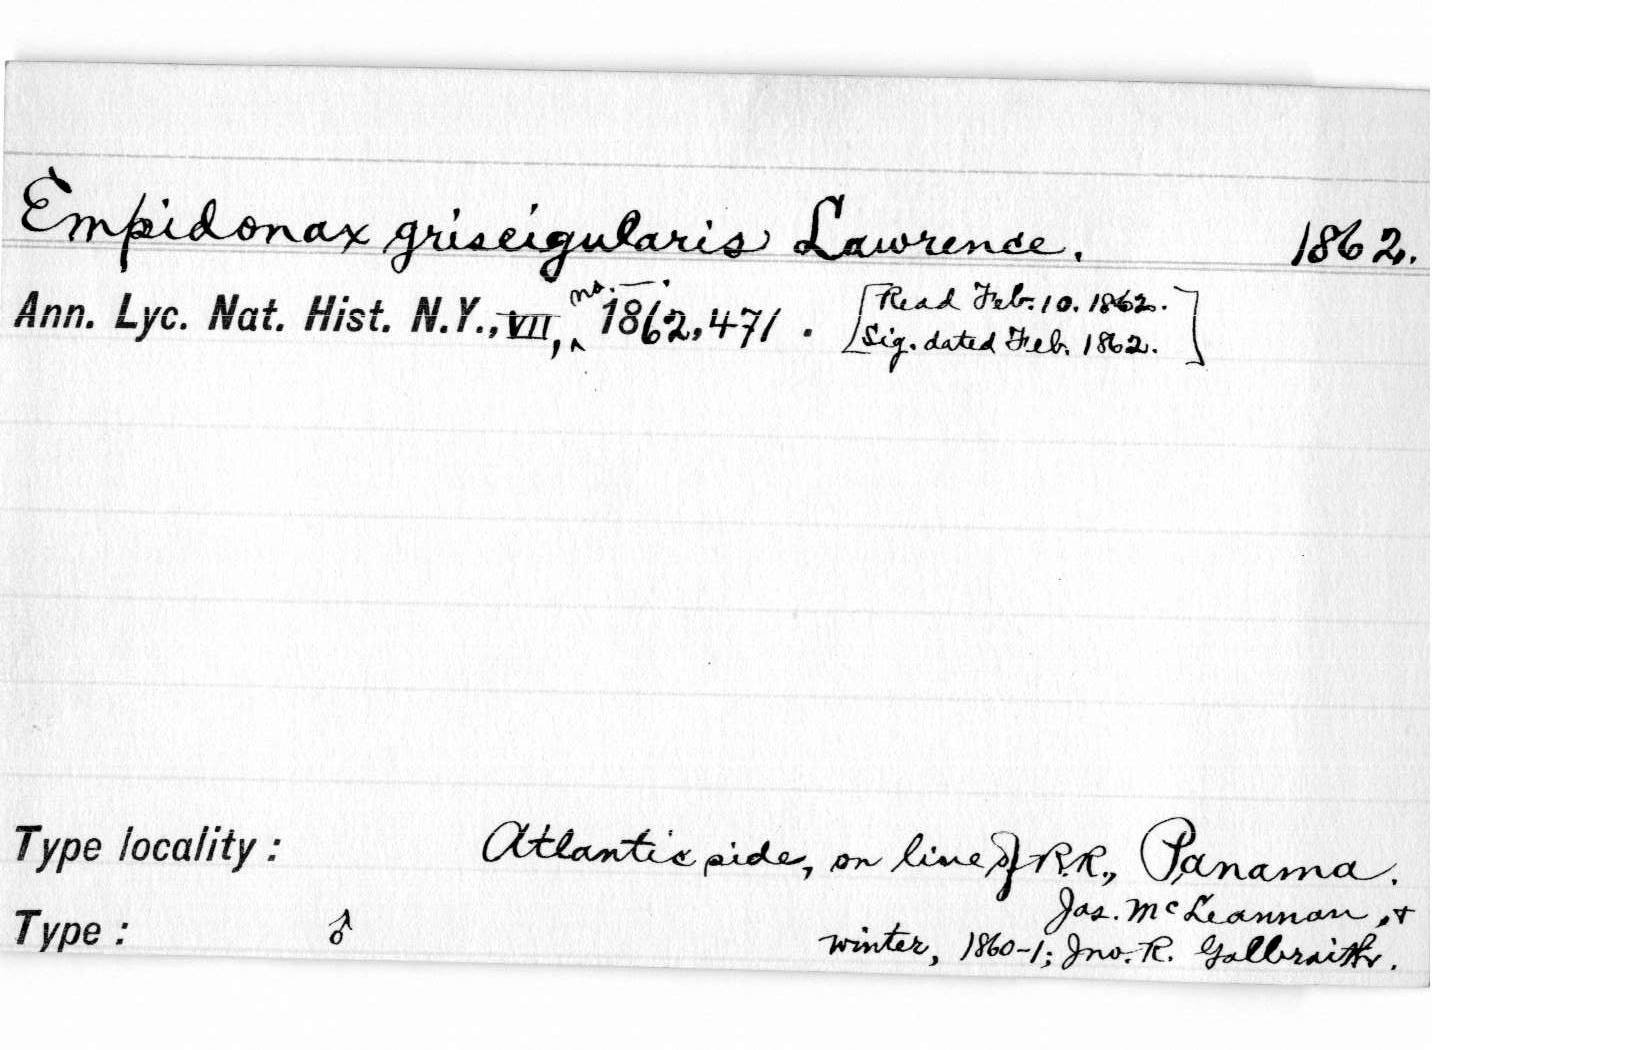 Empidonax griseigularis Lawrence. 1862.
Ann. Lyc. Nat. Hist. N.Y., VII, no. —. 1862, 471. [Read Feb. 10. 1862.
Sig. dated Feb. 1862.]
Type locality: Atlantic side, on line of R.R., Panama.
Jas. McLeannan, &
Type: ♂ winter, 1860-1; Jno. R. Galbraith.